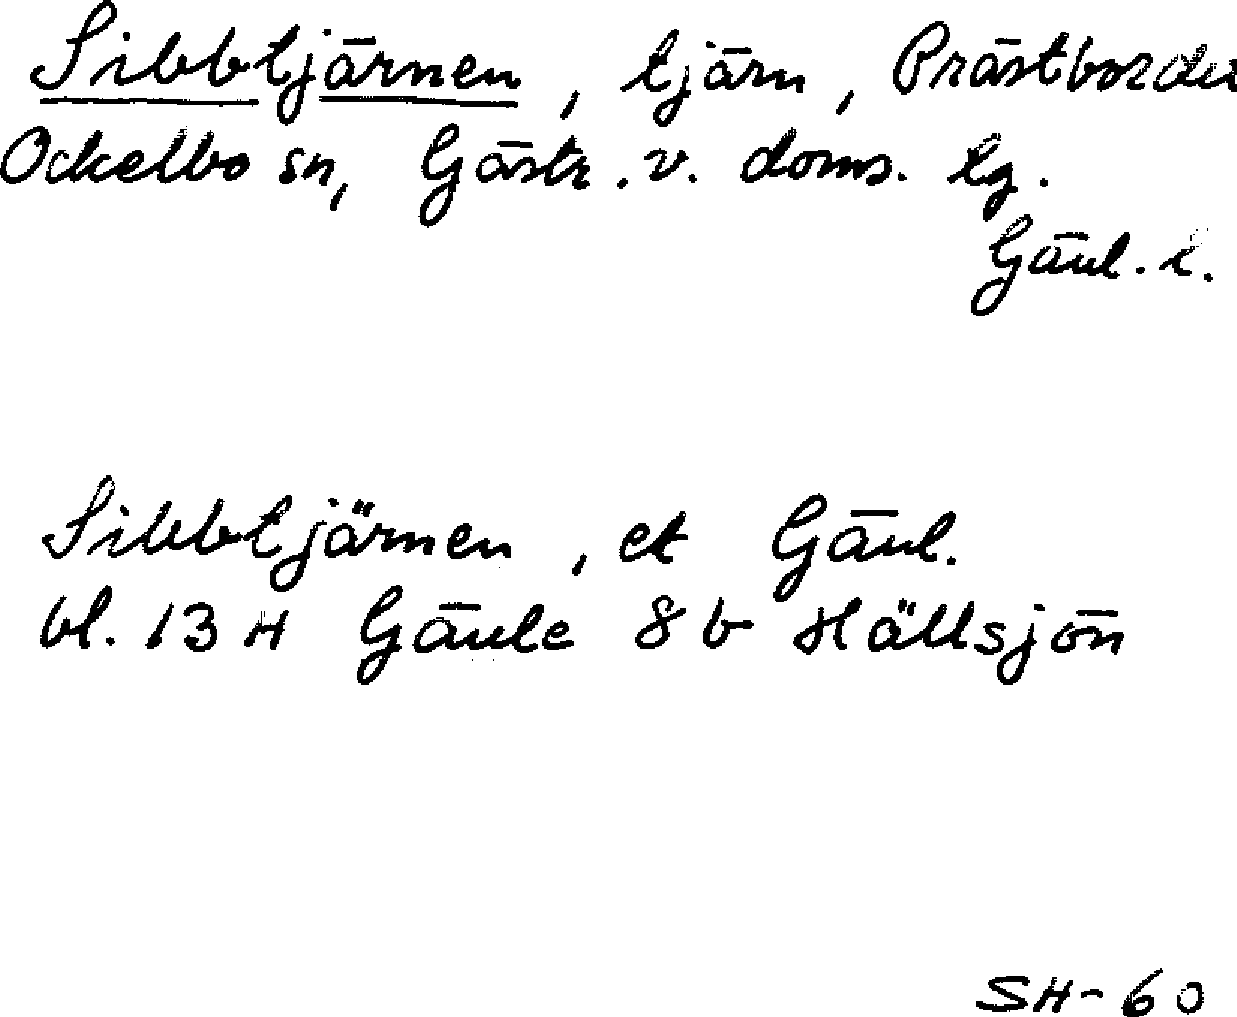 Sibbtjärnen, tjärn, Prästbordet
Ockelbo sn, Gästr. v. doms. lg.
Gävl. l.
Sibbtjärnen, ek Gävl.
bl. 13 H Gävle 8 b Hällsjön
SH-60